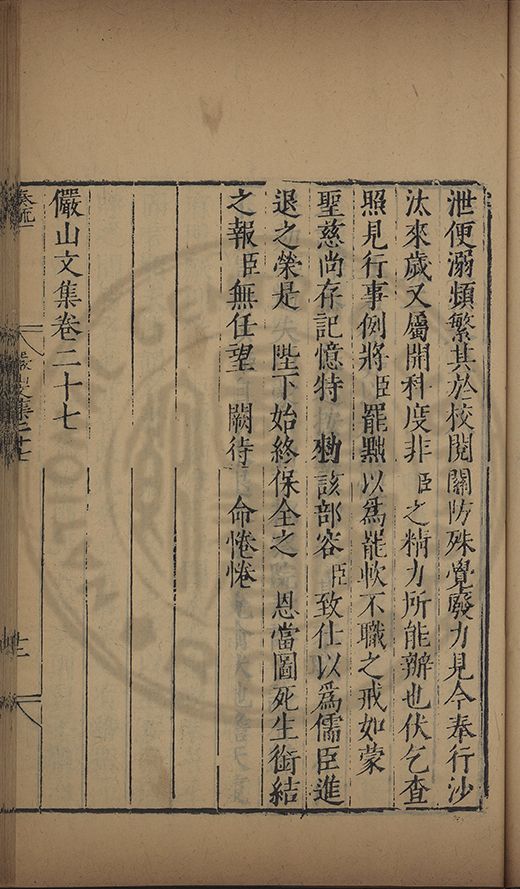 泄便溺頻繁其於校閱關防殊覺廢力見今奉行沙
汰來歲又屬開科度非臣之精力所能辦也伏乞查
照見行事例將臣罷黜以為罷軟不職之戒如蒙
聖慈尚存記憶特 勑該部容臣致仕以為儒臣進
退之榮是 陛下始終保全之 恩當圖死生銜結
之報臣無任望 闕待 命惓惓
儼山文集卷二十七